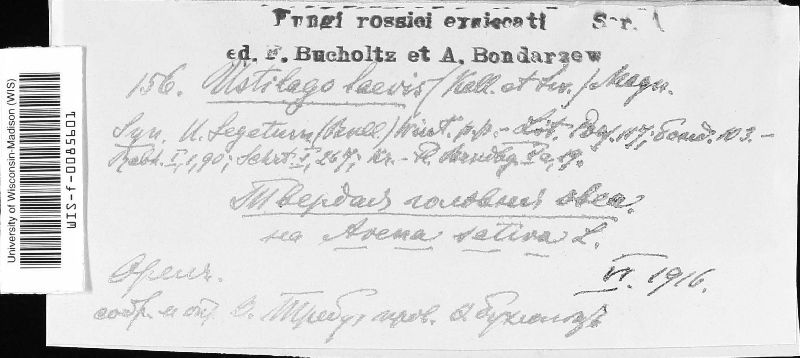 Fungi rossici exsiccati Ser.
ed. F. Bucholtz et A. Bondarzew
156. Ustilago laevis (Kell. et Sw.) Magn.
Syn. U. Segetum (Bull.) Wint. p.p. - Lit. 117; 103. -
Rabh. I, 1, 90; Schröt. I, 267; Kr. - Fl. Brndbg. Va, 19.
Твердая головня овса.
на Avena sativa L.
VI. 1916.
собр. и опр. Э. Требу, пров.
University of Wisconsin-Madison (WIS)
WIS-f-0085601